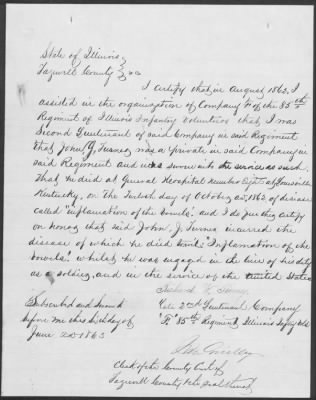 State of Illinois }
Tazwell County } ss
I certify that in August 1862, I
assisted in the organization of Company "F" of the 85th
Regiment of Illinois Infantry Volunteers that I was
Second Lieutenant of said Company in said Regiment
that John J. was a private in said Company in
said Regiment and was sworn into the service as such
That he died at General Hospital number Eight at Louisville
Kentucky, on the day of October AD 1862 of disease
called "inflamation of the bowels", and I do further certify
on honor that said John J. incurred the
disease of which he died to wit: "Inflamation of the
bowels" whilst he was engaged in the line of his duty
as a soldier, and in the service of the United States
Richard
2nd Lieutenant Company
"F" 85th Regiment, Illinois Infty Vols
Subscribed and sworn to
before me this day of
June AD 1863
Clerk of the County Court of
Tazewell County